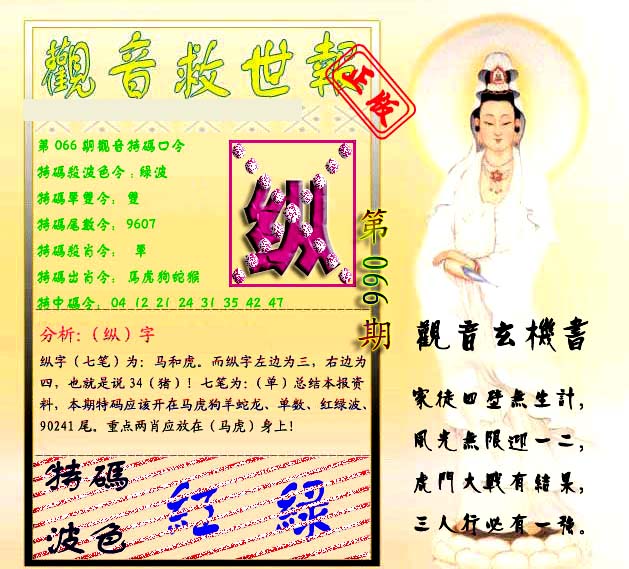 觀音救世報
正版
第066期觀音特碼口令
特碼殺波色令:綠波
特碼單雙令: 雙
特碼尾數令: 9607
特碼殺肖令: 單
特碼出肖令: 馬虎狗蛇猴
特中碼令: 04 12 21 24 31 35 42 47
纵
第066期
分析:(纵)字
纵字(七笔)为:马和虎。而纵字左边为三,右边为
四,也就是说34(猪)!七笔为:(单)总结本报资
料,本期特码应该开在马虎狗羊蛇龙、单数、红绿波、
90241尾。重点两肖应放在(马虎)身上!
特碼
波色
紅 綠
觀音玄機書
家徒四壁無生計,
風光無限迎一二,
虎鬥大戰有結果,
三人行必有一強。